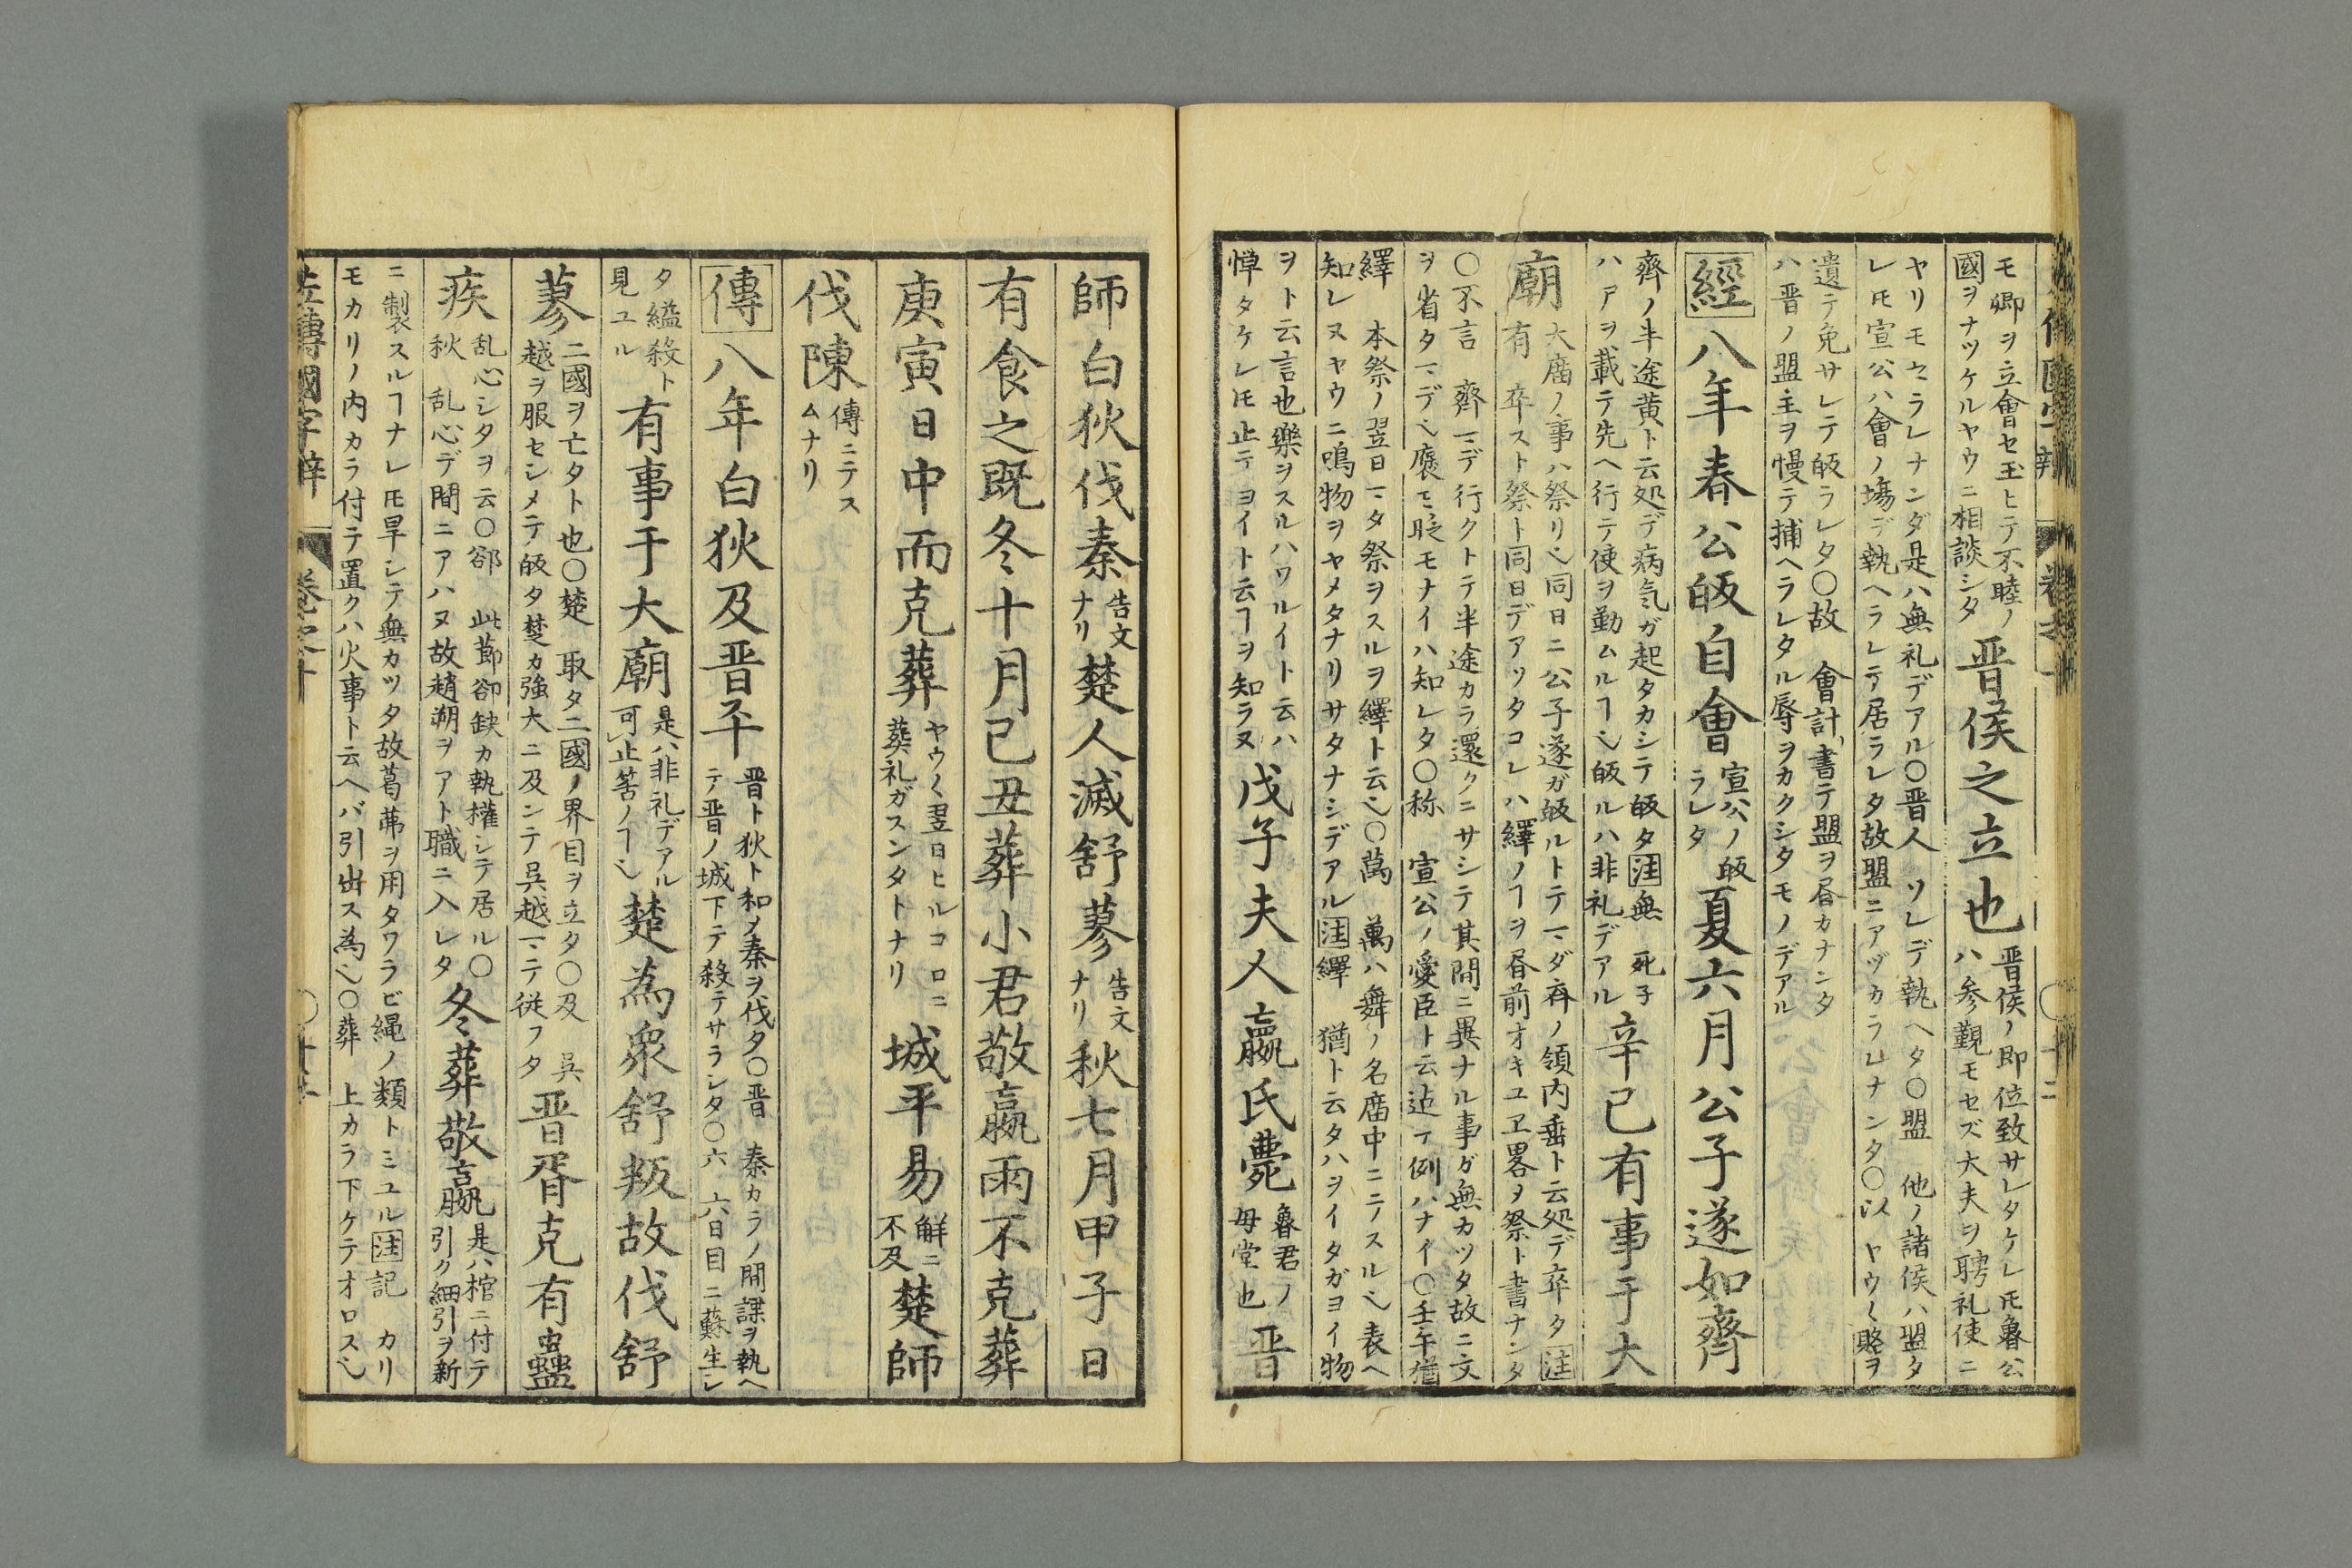 モ卿ヲ立會セ玉ヒテ不睦ノ
國ヲナツケルヤウニ相談シタ
晋侯之立也
晋侯ノ即位致サレタケレ𪜈魯公
ハ参覲モセズ大夫ヲ聘礼使ニ
ヤリモセラレナンダ是ハ無礼デアル○晋人 ソレデ執ヘタ○盟 他ノ諸侯ハ盟タ
レ𪜈宣公ハ會ノ塲デ執ヘラレテ居ラレタ故盟ニアヅカラレナンタ○以 ヤウ〱賂ヲ
遺テ免サレテ皈ラレタ○故 會計書テ盟ヲ昏カナンタ
ハ晋ノ盟主ヲ慢テ捕ヘラレタル辱ヲカクシタモノデアル
經八年春公皈自會
宣公ノ皈
ラレタ
夏六月公子遂如齊
齊ノ半途黄ト云処デ病気ガ起タカシテ皈タ注無 死子
ハアヲ載テ先ヘ行テ使ヲ勤ムルヿ〵皈ルハ非礼デアル
辛已有事于大
廟
大庿ノ事ハ祭リ〵同日ニ公子遂ガ皈ルトテマダ斉ノ領内垂ト云処デ卒タ注
有 卒スト祭ト同日デアツタコレハ繹ノヿヲ昏前オキユヱ畧ヲ祭ト書ナンタ
○不言 齊マデ行クトテ半途カラ還クニサシテ其間ニ異ナル事ガ無カツタ故ニ文
ヲ省タマデ〵褒モ貶モナイハ知レタ○称 宣公ノ愛臣ト云迠テ例ハナイ○壬午猶
繹 本祭ノ翌日マタ祭ヲスルヲ繹ト云〵○萬 萬ハ舞ノ名庿中ニニノスル〵表ヘ
知レヌヤウニ鳴物ヲヤメタナリサタナシデアル注繹 猶ト云タハヲイタガヨイ物
ヲト云言也樂ヲスルハワルイト云ハ
憚タケレ𪜈止テヨイト云ヿヲ知ラヌ
戊子夫人嬴氏薨
魯君ノ
母堂也
晋
師白狄伐秦
告文
ナリ
楚人滅舒蓼
告文
ナリ
秋七月甲子日
有食之既冬十月己丑葬小君敬嬴雨不克葬
庚寅日中而克葬
ヤウ〱翌日ヒルコロニ
葬礼ガスンタトナリ
城平易
觧ニ
不及
楚師
伐陳
傳ニテス
ムナリ
傳八年白狄及晋平
晋ト狄ト和ノ秦ヲ伐タ○晋 秦カラノ間諜ヲ執ヘ
テ晋ノ城下テ殺テサラシタ○六 六日目ニ蘇生シ
タ縊殺ト
見ユル
有事于大廟
是ハ非礼デアル
可止筈ノヿ〵
楚為衆舒叛故伐舒
蓼
二國ヲ亡タト也○楚 取タ二國ノ界目ヲ立タ○及 呉
越ヲ服セシメテ皈タ楚カ強大ニ及ンテ呉越マテ従フタ
晋胥克有蠱
疾
乱心シタヲ云○郤 此節卻缺カ執權シテ居ル○
秋 乱心デ間ニアハヌ故趙朔ヲアト職ニ入レタ
冬葬敬嬴
是ハ棺ニ付テ
引ク綱引ヲ新
ニ製スルヿナレ𪜈旱シテ無カツタ故葛茀ヲ用タワラビ縄ノ類トミユル注記 カリ
モカリノ内カラ付テ置クハ火事ト云ヘバ引出ス為〵○葬 上カラ下ケテオロス〵
左傳國字辯